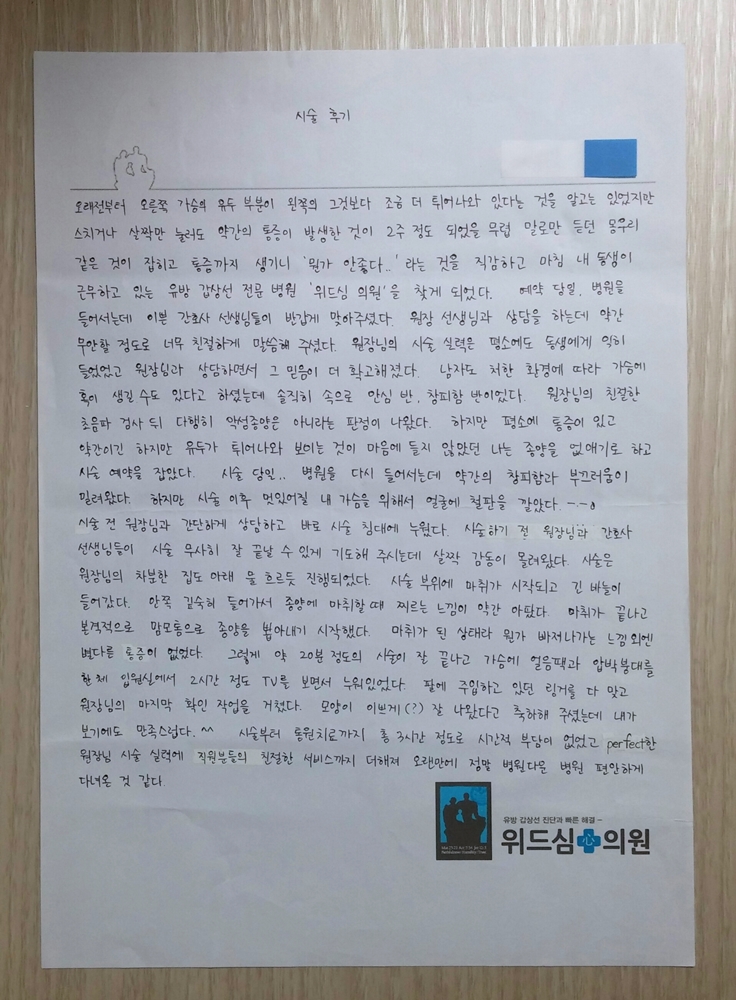 시술 후기
오래전부터 오른쪽 가슴의 유두 부분이 왼쪽의 그것보다 조금 더 튀어나와 있다는 것을 알고는 있었지만
스치거나 살짝만 눌러도 약간의 통증이 발생한 것이 2주 정도 되었을 무렵 말로만 듣던 몽우리
같은 것이 잡히고 통증까지 생기니 '뭔가 안좋다..' 라는 것을 직감하고 마침 내 동생이
근무하고 있는 유방 갑상선 전문 병원 '위드심 의원'을 찾게 되었다. 예약 당일, 병원을
들어서는데 이쁜 간호사 선생님들이 반갑게 맞아주셨다. 원장 선생님과 상담을 하는데 약간
무안할 정도로 너무 친절하게 말씀해 주셨다. 원장님의 시술 실력은 평소에도 동생에게 익히
들었었고 원장님과 상담하면서 그 믿음이 더 확고해졌다. 남자도 처한 환경에 따라 가슴에
혹이 생길 수도 있다고 하셨는데 솔직히 속으로 안심 반, 창피함 반이었다. 원장님의 친절한
초음파 검사 뒤 다행히 악성종양은 아니라는 판정이 나왔다. 하지만 평소에 통증이 있고
약간이긴 하지만 유두가 튀어나와 보이는 것이 마음에 들지 않았던 나는 종양을 없애기로 하고
시술 예약을 잡았다. 시술 당일.. 병원을 다시 들어서는데 약간의 창피함과 부끄러움이
밀려왔다. 하지만 시술 이후 멋있어질 내 가슴을 위해서 얼굴에 철판을 깔았다. -.-a
시술 전 원장님과 간단하게 상담하고 바로 시술 침대에 누웠다. 시술하기 전 원장님과 간호사
선생님들이 시술 무사히 잘 끝날 수 있게 기도해 주시는데 살짝 감동이 몰려왔다. 시술은
원장님의 차분한 집도 아래 물 흐르듯 진행되었다. 시술 부위에 마취가 시작되고 긴 바늘이
들어갔다. 안쪽 깊숙히 들어가서 종양에 마취할 때 찌르는 느낌이 약간 아팠다. 마취가 끝나고
본격적으로 맘모톰으로 종양을 뽑아내기 시작했다. 마취가 된 상태라 뭔가 빠져나가는 느낌 외엔
별다를 통증이 없었다. 그렇게 약 20분 정도의 시술이 잘 끝나고 가슴에 얼음팩과 압박붕대를
한 체 입원실에서 2시간 정도 TV를 보면서 누워있었다. 팔에 주입하고 있던 링거를 다 맞고
원장님의 마지막 확인 작업을 거쳤다. 모양이 이쁘게(?) 잘 나왔다고 축하해 주셨는데 내가
보기에도 만족스럽다.^^ 시술부터 통원치료까지 총 3시간 정도로 시간적 부담이 없었고 perfect한
원장님 시술 실력에 직원분들의 친절한 서비스까지 더해져 오랜만에 정말 병원다운 병원 편안하게
다녀온 것 같다.
유방 갑상선 진단과 빠른 해결 -
위드심 心 의원